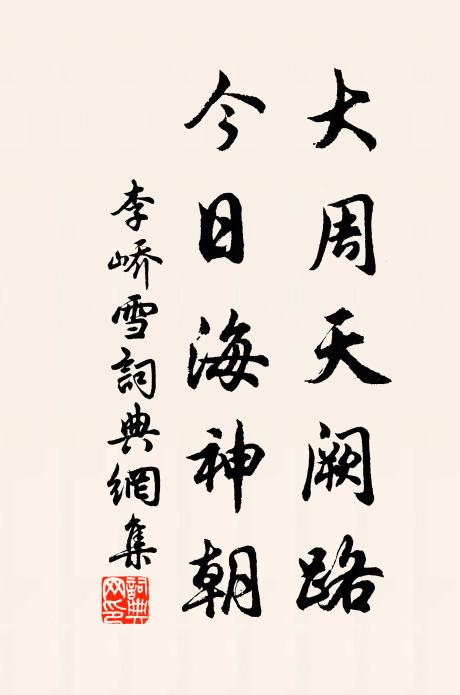 大周天阙路
今日海神朝
李峤雪詞典網集
詞典网印